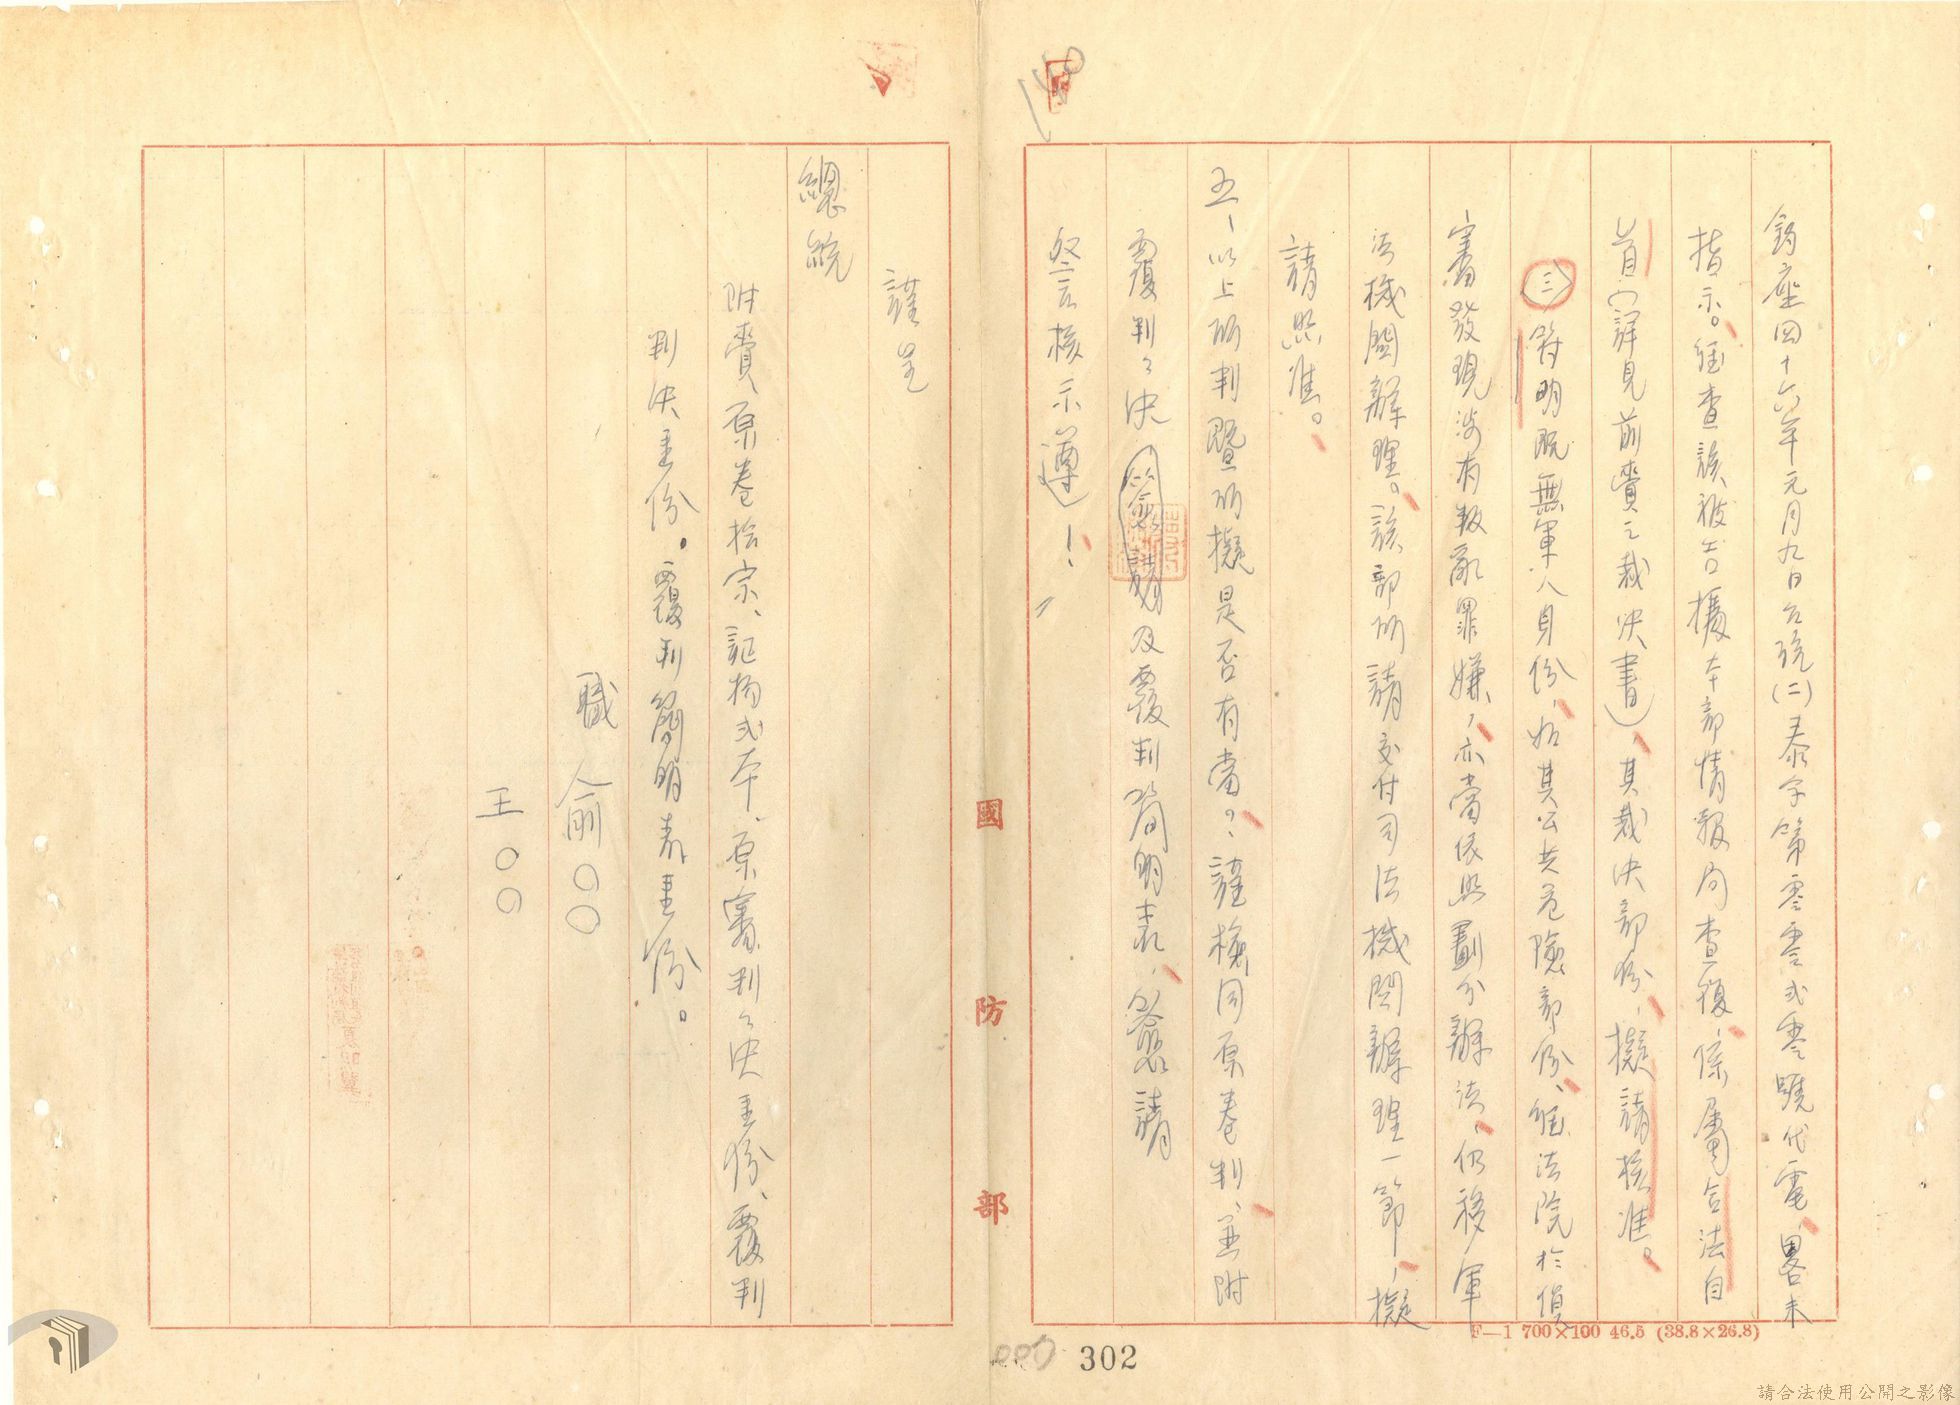 鈞座四十六年元月九日台統(二)泰字第零零式零號代電、畧未
指示。經查該被告據本部情報局查復、係屬合法自
首(詳見前賫之裁決書)、其裁決部份、擬請核准。
(三)符明既無軍人身份、如其公共危險部份、經法院於偵
審發現涉有叛亂罪嫌、亦當依照劃分辦法、仍移軍
法機關辦理。該部所請交付司法機關辦理一節、擬
請照准。
五、以上所判暨所擬是否有當?謹檢同原卷判、並附
覆判判決 及覆判簡明表、簽懇請
鑒核示遵!
謹呈
總統
附賫原卷拾宗、証物式本、原審判決壹份、覆判
判決壹份。覆判簡明表壹份。
職 俞○○
王○○
國防部
F—1 700×100 46.5 (38.8×26.8)
302
請合法使用公開之影像